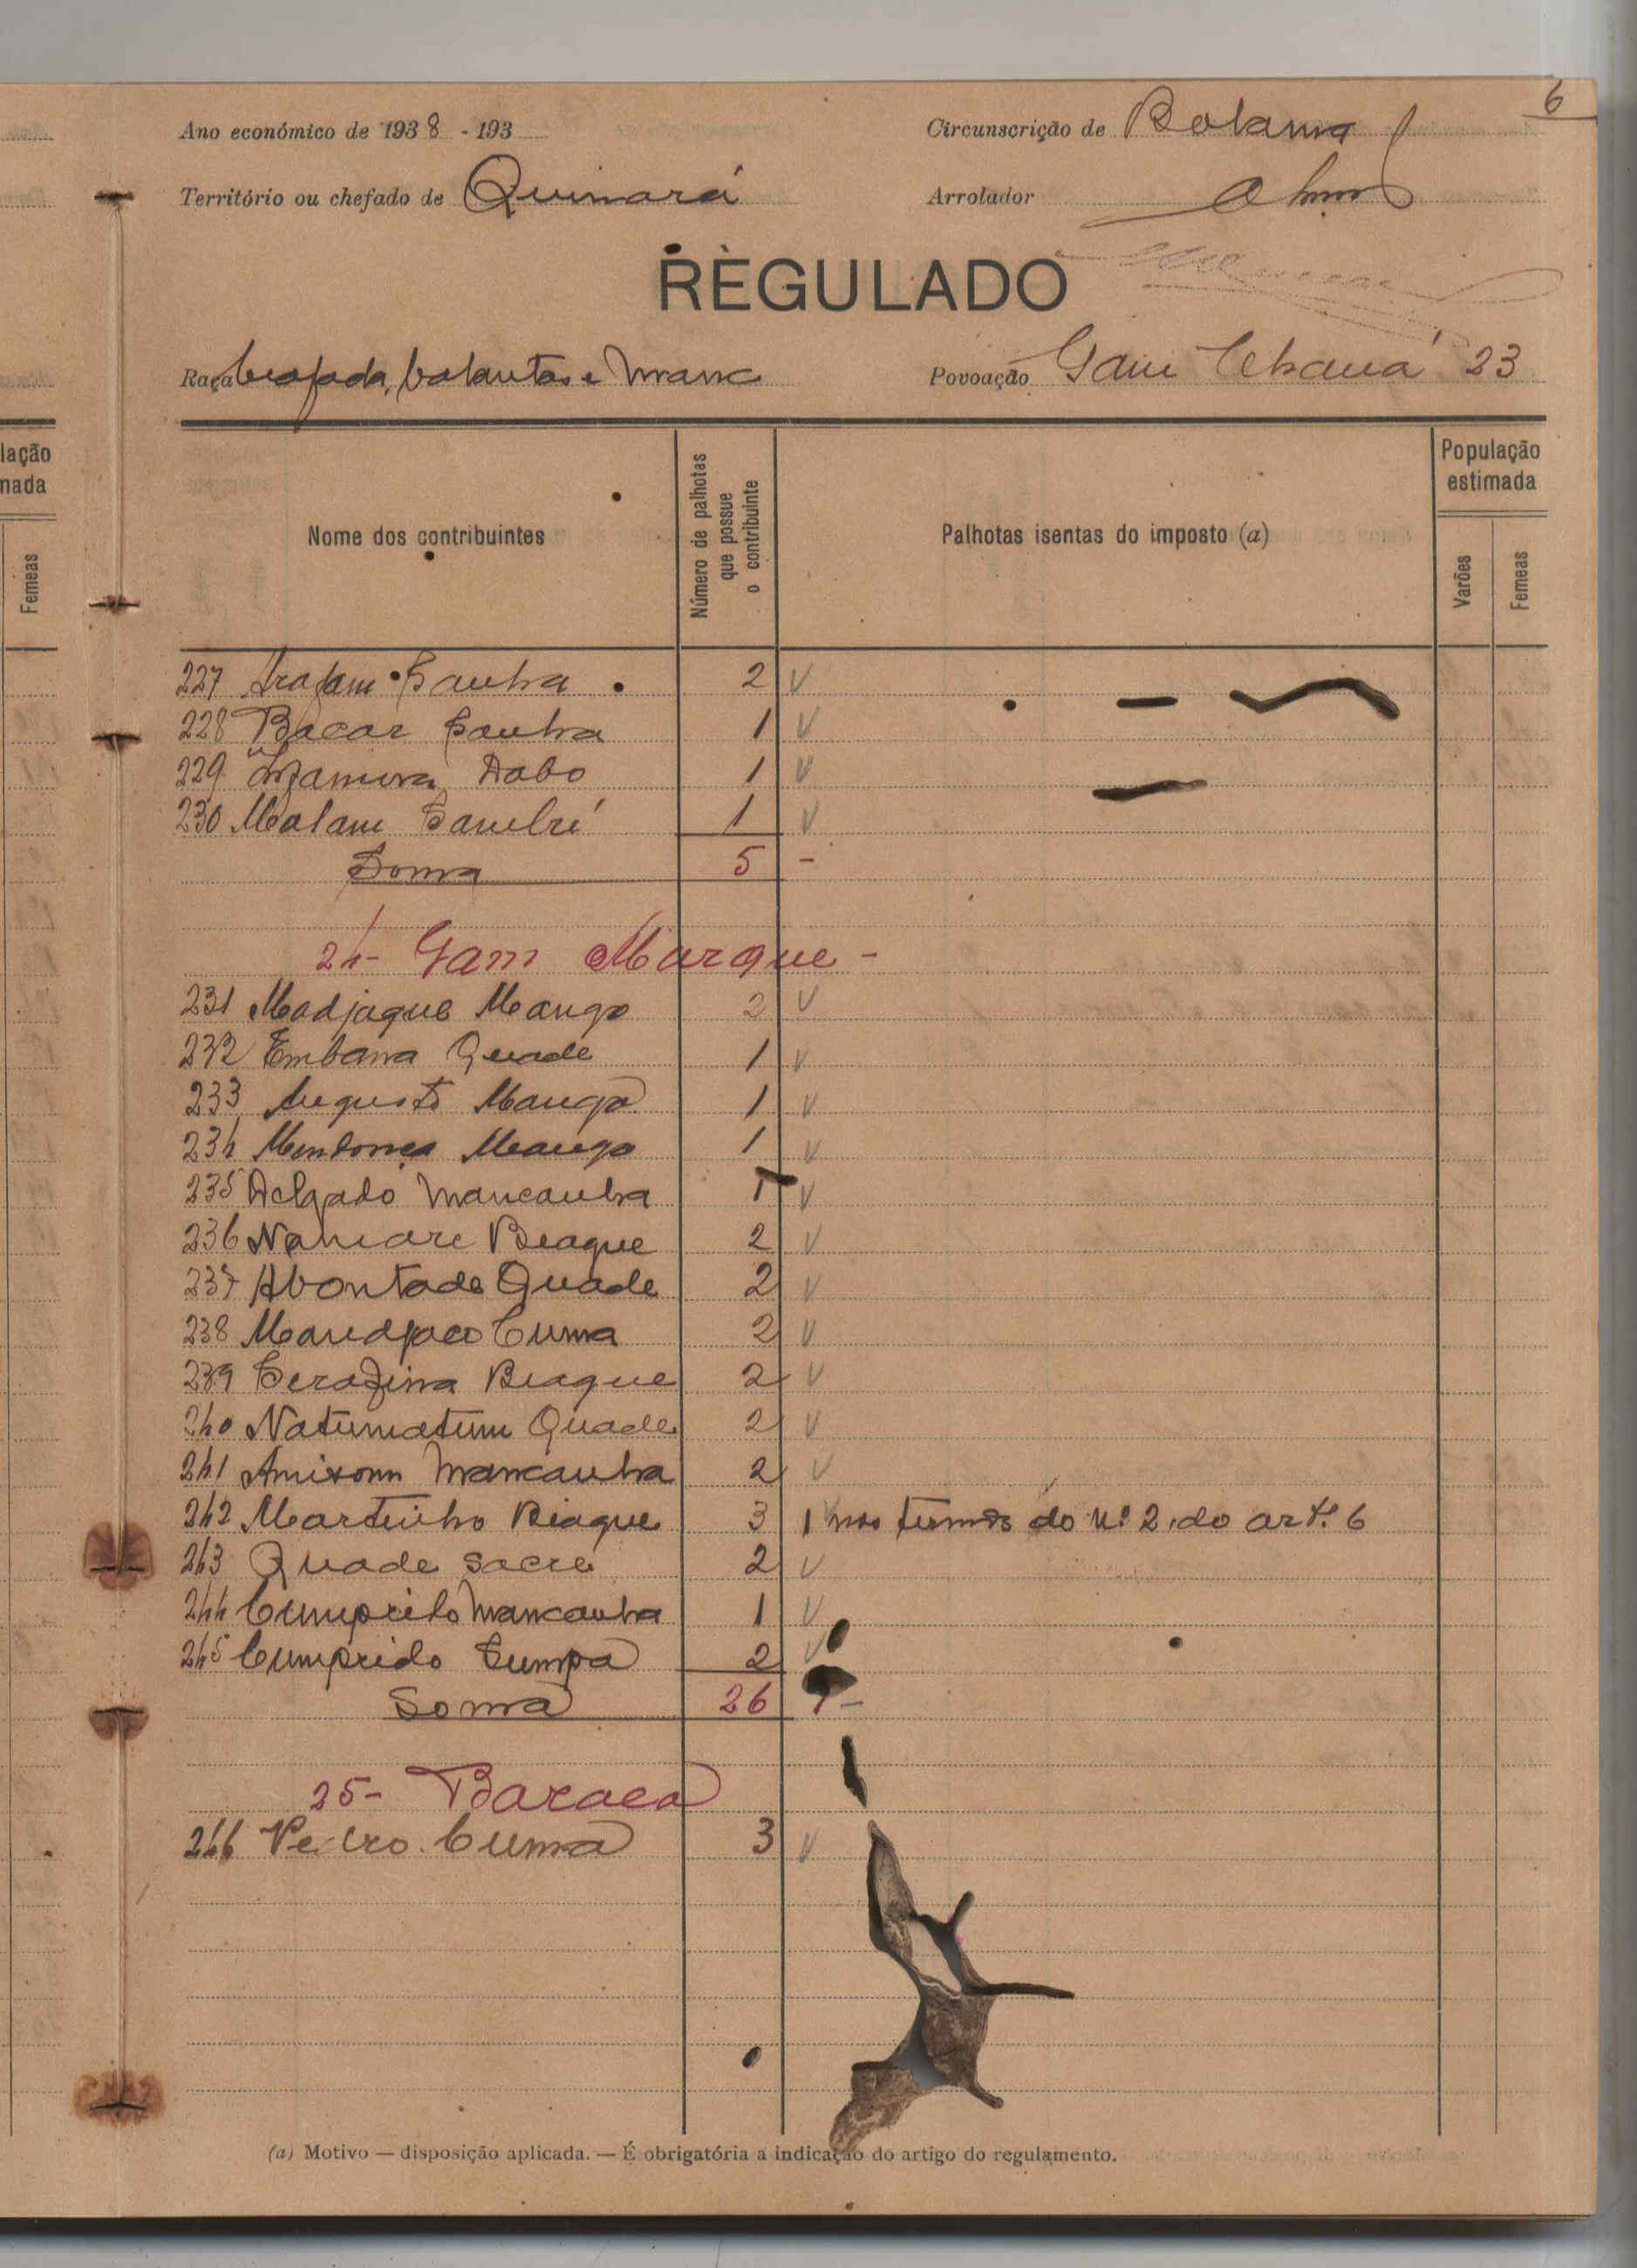 6
Ano económico de 1938 - 193
Circunscrição de Bolama
Território ou chefado de Quinará
Arrolador
REGULADO
Raça beafada, balantas e manc
Povoação Gam Chaná 23
lação
nada
Femeas
Nome dos contribuintes
Número de palhotas que possue o contribuinte
Palhotas isentas do imposto (a)
População estimada
Varões
Femeas
227 Arafam Sanha 2 V
228 Bacar Sanha 1 V
229 Dabo 1 V
230 Malam Sambú 1 V
Soma 5 -
24 - Gam Marque -
231 Madjaque Mango 2 V
232 Embana Quade 1 V
233 Augusto Mango 1 V
234 Mendonça Mango 1 V
235 Delgado Mancanha 1 V
236 Naniare Biaque 2 V
237 Abontade Quade 2 V
238 Mandjaco Cuma 2 V
239 Serafina Biaque 2 V
240 Natumatum Quade 2 V
241 Mancanha 2 V
242 Martinho Biaque 3 1 nos termos do nº 2 do artº 6
243 Quade Sacre 2 V
244 Cumprido Mancanha 1 V
245 Cumprido Sumpa 2 V
Soma 26 1 -
25 - Baraca
246 Pedro Cuma 3 V
(a) Motivo — disposição aplicada. — É obrigatória a indicação do artigo do regulamento.